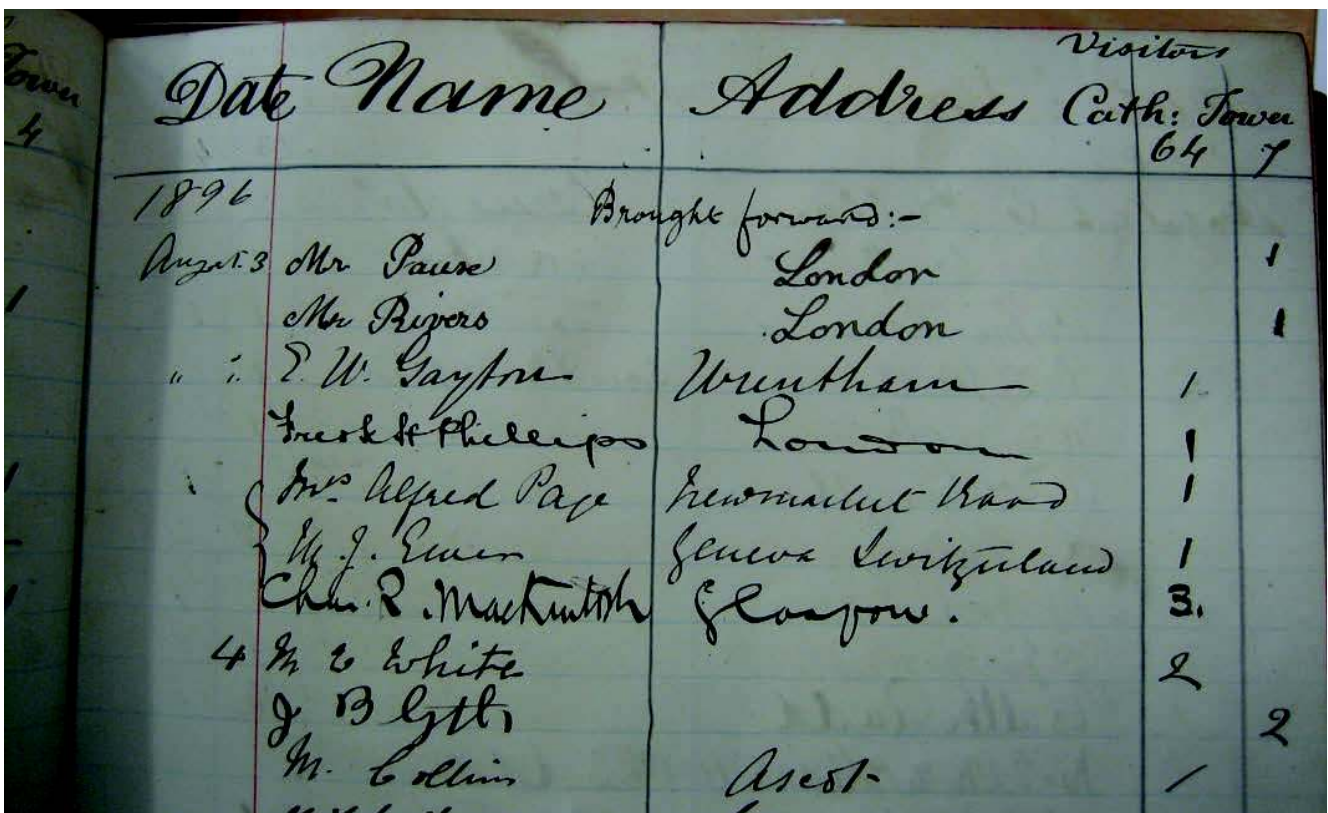 Visitors
Date Name Address Cath: Tower
64 7
1896 Brought forward:-
August. 3 Mr. Pause London 1
Mr Rivers London 1
" " E. W. Gayton Wrentham 1
Fredk H Phillips London 1
Mrs Alfred Page Newmarket Road 1
M. J. Geneva Switzerland 1
Chas. R. Mackintosh Glasgow. 3.
4 M E White 2
J B 2
M. Collins Ascot 1
Tower
4